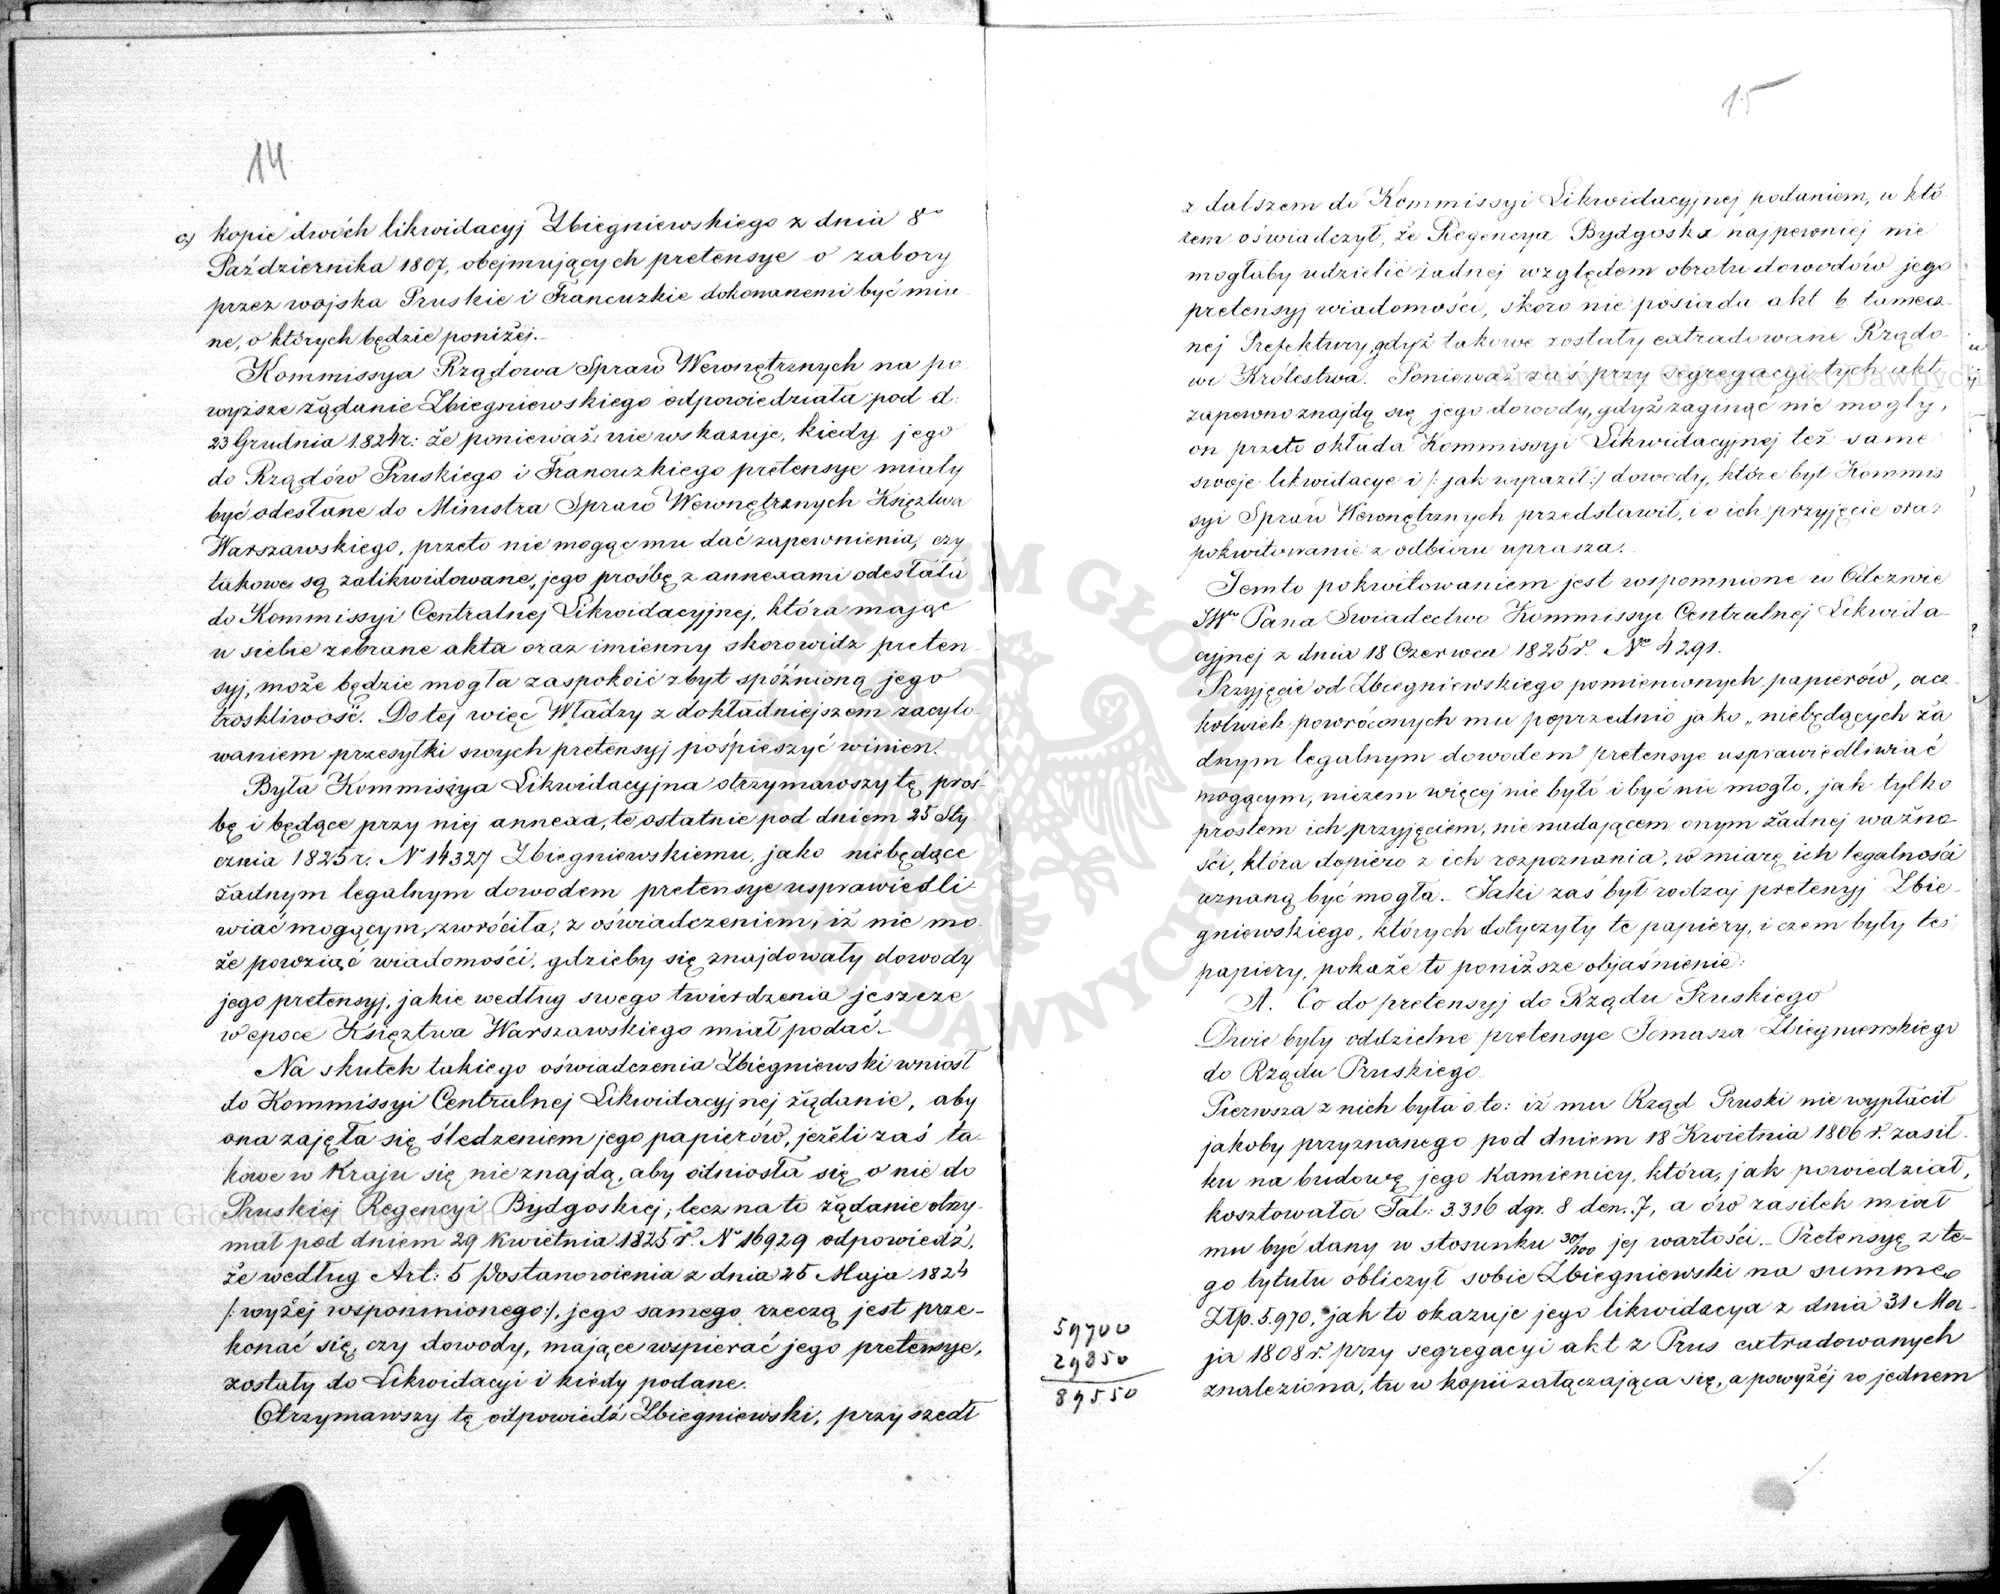 14
c) kopie dwóch likwidacyj Zbiegniewskiego z dnia 8º
Października 1807, obejmujących pretensye o zabory
przez wojska Pruskie i Francuzkie dokonanemi być mia-
ne, o których będzie poniżej.-
Kommissya Rządowa Spraw Wewnętrznych na po
wyższe żądanie Zbiegniewskiego odpowiedziała pod d:
23 Grudnia 1824 r: że ponieważ nie wskazuje, kiedy jego
do Rządów Pruskiego i Francuzkiego pretensye miały
być odesłane do Ministra Spraw Wewnętrznych Księztwa
Warszawskiego, przeto nie mogąc mu dać zapewnienia, czy
takowe są zalikwidowane, jego prośbę z annexami odesłała
do Kommissyi Centralnej Likwidacyjnej, która mając
u siebie zebrane akta oraz imienny skorowidz preten-
syj, może będzie mogła zaspokoić zbyt spóźnioną jego
troskliwość. Do tej więc Władzy z dokładniejszem zacyto-
waniem przesyłki swych pretensyj pośpieszyć winien.
Była Kommissya Likwidacyjna otrzymawszy tę proś-
bę i będące przy niej annexa, te ostatnie pod dniem 25 Sty
cznia 1825 r. Nº 14327 Zbiegniewskiemu, jako niebędące
żadnym legalnym dowodem pretensye usprawiedli-
wiać mogącym, zwróciła, z oświadczeniem, iż nie mo-
że powziąć wiadomości, gdzieby się znajdowały dowody
jego pretensyj, jakie według swego twierdzenia jeszcze
w epoce Księztwa Warszawskiego miał podać.-
Na skutek takiego oświadczenia Zbiegniewski wniósł
do Kommissyi Centralnej Likwidacyjnej żądanie, aby
ona zajęła się śledzeniem jego papierów, jeżeli zaś ta-
kowe w Kraju się nie znajdą, aby odniosła się o nie do
Pruskiej Regencyi Bydgoskiej; lecz na to żądanie otrzy-
mał pod dniem 29 Kwietnia 1825 r. Nº 16929 odpowiedź,
że według Art: 5 Postanowienia z dnia 25 Maja 1824
/: wyżej wspomnionego:/, jego samego rzeczą jest prze-
konać się, czy dowody, mające wspierać jego pretensye,
zostały do Likwidacyi i kiedy podane.
Otrzymawszy tę odpowiedź Zbiegniewski, przyszedł
15
z dalszem do Kommissyi Likwidacyjnej podaniem, w któ-
rem oświadczył, że Regencya Bydgoska najpewniej nie
mogłaby udzielić żadnej względem obrotu dowodów jego
pretensyj wiadomości, skoro nie posiada akt b. tamecz-
nej Prefektury, gdyż takowe zostały extradowane Rządo-
wi Królestwa. Ponieważ zaś przy segregacyi tych akt
zapewno znajdą się jego dowody, gdyż zaginąć nie mogły,
on przeto okłada Kommissyi Likwidacyjnej też same
swoje likwidacye i /: jak wyraził:/ dowody, które był Kommis
syi Spraw Wewnętrznych przedstawił, i o ich przyjęcie oraz
pokwitowanie z odbioru uprasza.
Temto pokwitowaniem jest wspomnione w Odezwie
JWº Pana Świadectwo Kommissyi Centralnej Likwida-
cyjnej z dnia 18 Czerwca 1825 r. Nº 4291.
Przyjęcie od Zbiegniewskiego pomienionych papierów, acz-
kolwiek powróconych mu poprzednio jako „niebędących ża
dnym legalnym dowodem” pretensye usprawiedliwiać
mogącym, niczem więcej nie było i być nie mogło, jak tylko
prostem ich przyjęciem, nie nadającem onym żadnej ważno-
ści, która dopiero z ich rozpoznania, w miarę ich legalności
uznaną być mogła. Jaki zaś był rodzaj pretensyj Zbie-
gniewskiego, których dotyczyły te papiery, i czem były też
papiery, pokaże to poniższe objaśnienie:
A. Co do pretensyj do Rządu Pruskiego
Dwie były oddzielne pretensye Tomasza Zbiegniewskiego
do Rządu Pruskiego.
Pierwsza z nich była o to: iż mu Rząd Pruski nie wypłacił
jakoby przyznanego pod dniem 18 Kwietnia 1806 r. zasił-
ku na budowę jego kamienicy, która, jak powiedział,
kosztowała Tal: 3.316 dgr. 8 den. 7, a ów zasiłek miał
mu być dany w stosunku 30/100 jej wartości.- Pretensyę z te-
go tytułu obliczył sobie Zbiegniewski na summę
Złp. 5.970, jak to okazuje jego likwidacya z dnia 31 Ma-
ja 1808 r. przy segregacyi akt z Prus extradowanych
znaleziona, tu w kopii załączająca się, a powyżej w jednem
59700
29850
89550